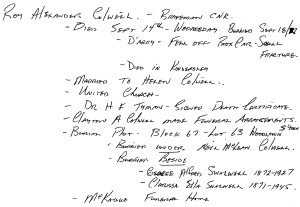 Roy Alexander Colwell. - Brakeman CNR.
- Died Sept 14th - Wednesday Buried Sept 18/
- D'Arcy - Fell off Box Car - Skull Fracture
- Died in Kindersley
- Married to Helen Colwell.
- United Church -
- Dr H F Tyerman - Signed Death Certificate.
- Clayton A Colwell made Funeral Arrangements.
- Burial Plot - Block 67 - Lot 63 Woodlawn
- Buried under Neil McLean Colwell.
- Buried Beside
- George Alfred Swinwell 1872-1927
- Clarissa Ella Swinwell 1871-1945.
- McKague Funeral Home